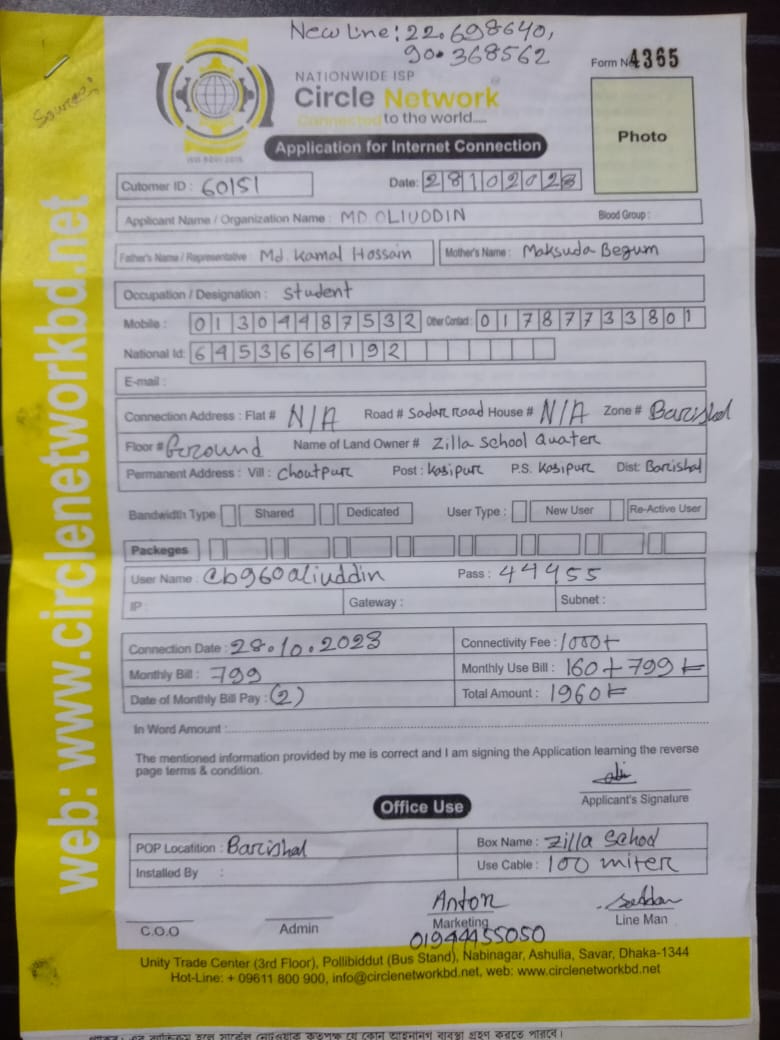 New Line: 22.698640,
90.368562
Form No 4365
NATIONWIDE ISP
Circle Network
Connected to the world.....
ISO 9001:2015
Application for Internet Connection
Photo
Cutomer ID : 60151
Date: 28102023
Applicant Name / Organization Name : MD. OLIUDDIN Blood Group :
Father's Name / Representative Md. Kamal Hossain Mother's Name : Maksuda Begum
Occupation / Designation : Student
Mobile : 01304487532 Other Contact : 01787733801
National Id: 6453664192
E-mail :
Connection Address : Flat # N/A Road # Sadar road House # N/A Zone # Barishal
Floor # Ground Name of Land Owner # Zilla School Quater
Permanent Address : Vill : Choutpur Post : Kasipur P.S. Kosipur Dist: Barishal
Bandwidth Type Shared Dedicated User Type : New User Re-Active User
Packeges
User Name : cb960aliuddin Pass : 44955
IP : Gateway : Subnet :
Connection Date : 28.10.2023 Connectivity Fee : 1000+
Monthly Bill : 799 Monthly Use Bill : 160+799
Date of Monthly Bill Pay : (2) Total Amount : 1960
In Word Amount :
The mentioned information provided by me is correct and I am signing the Application learning the reverse
page terms & condition.
Applicant's Signature
Office Use
POP Locatition : Barishal Box Name : Zilla School
Installed By : Use Cable : 100 miter
Anton
C.O.O Admin Marketing Line Man
01944455050
Unity Trade Center (3rd Floor), Pollibiddut (Bus Stand), Nabinagar, Ashulia, Savar, Dhaka-1344
Hot-Line: + 09611 800 900, info@circlenetworkbd.net, web: www.circlenetworkbd.net
web: www.circlenetworkbd.net